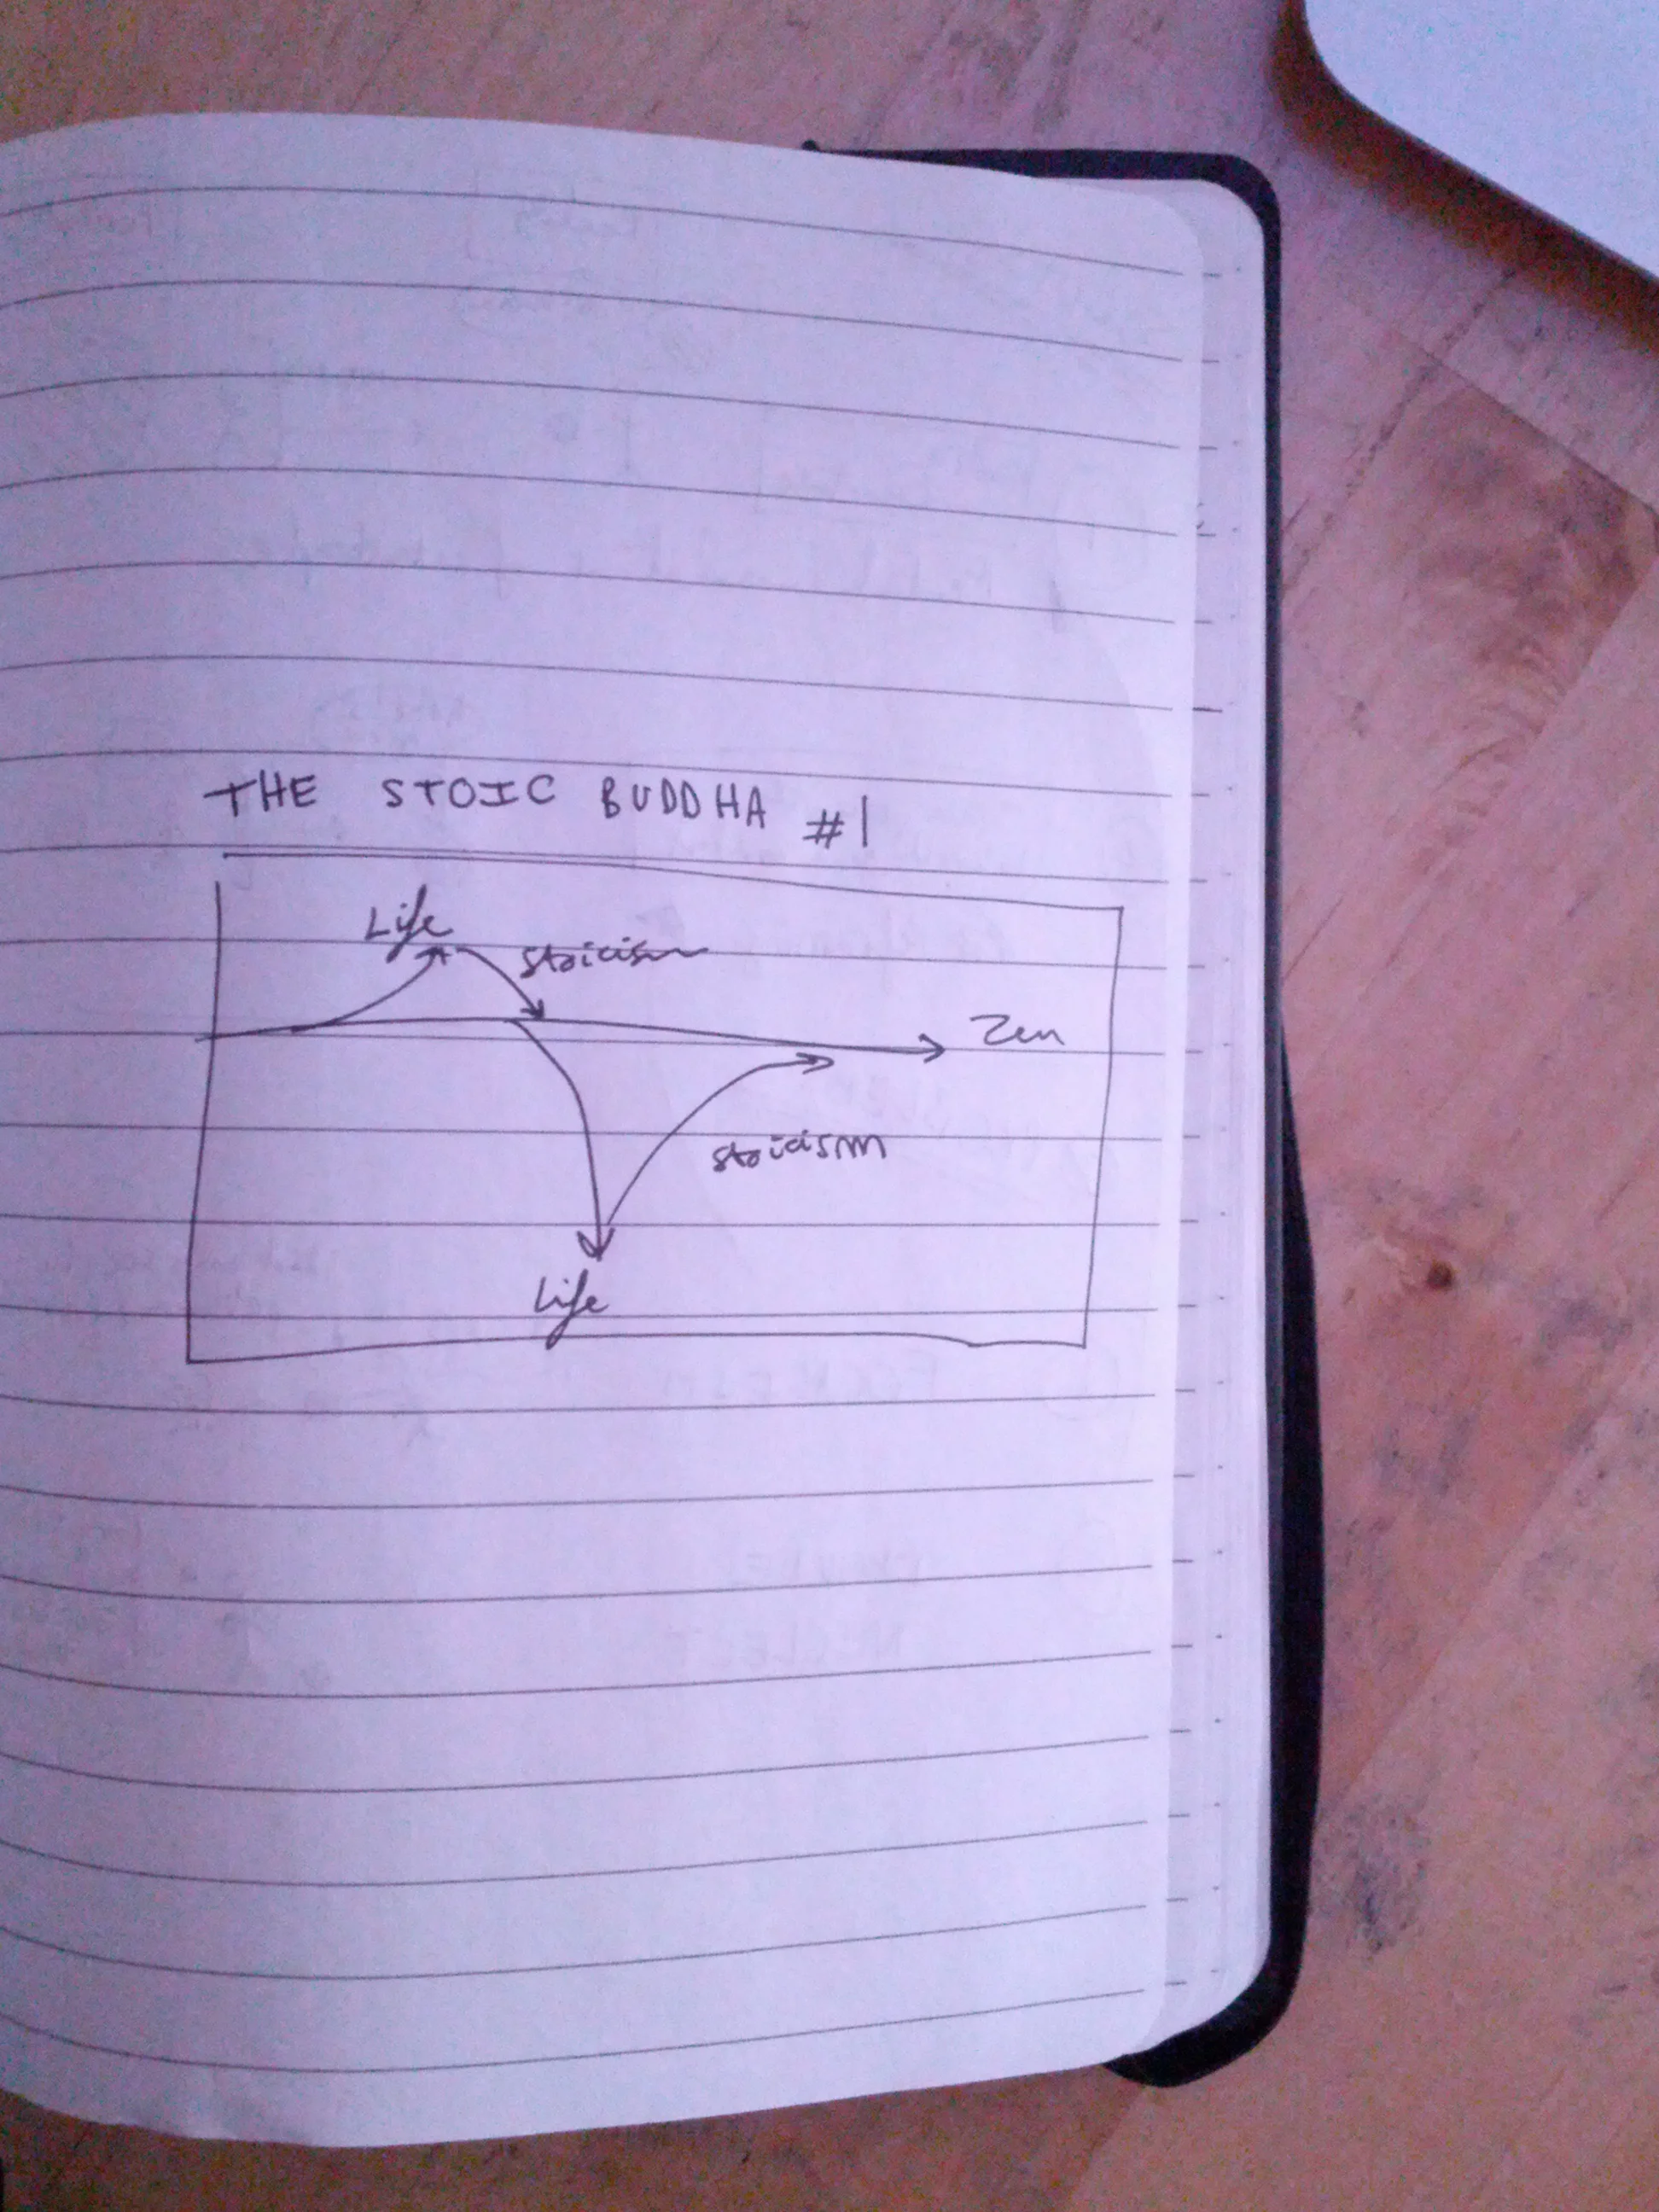 THE STOIC BUDDHA #1
Life
stoicism
Zen
stoicism
Life